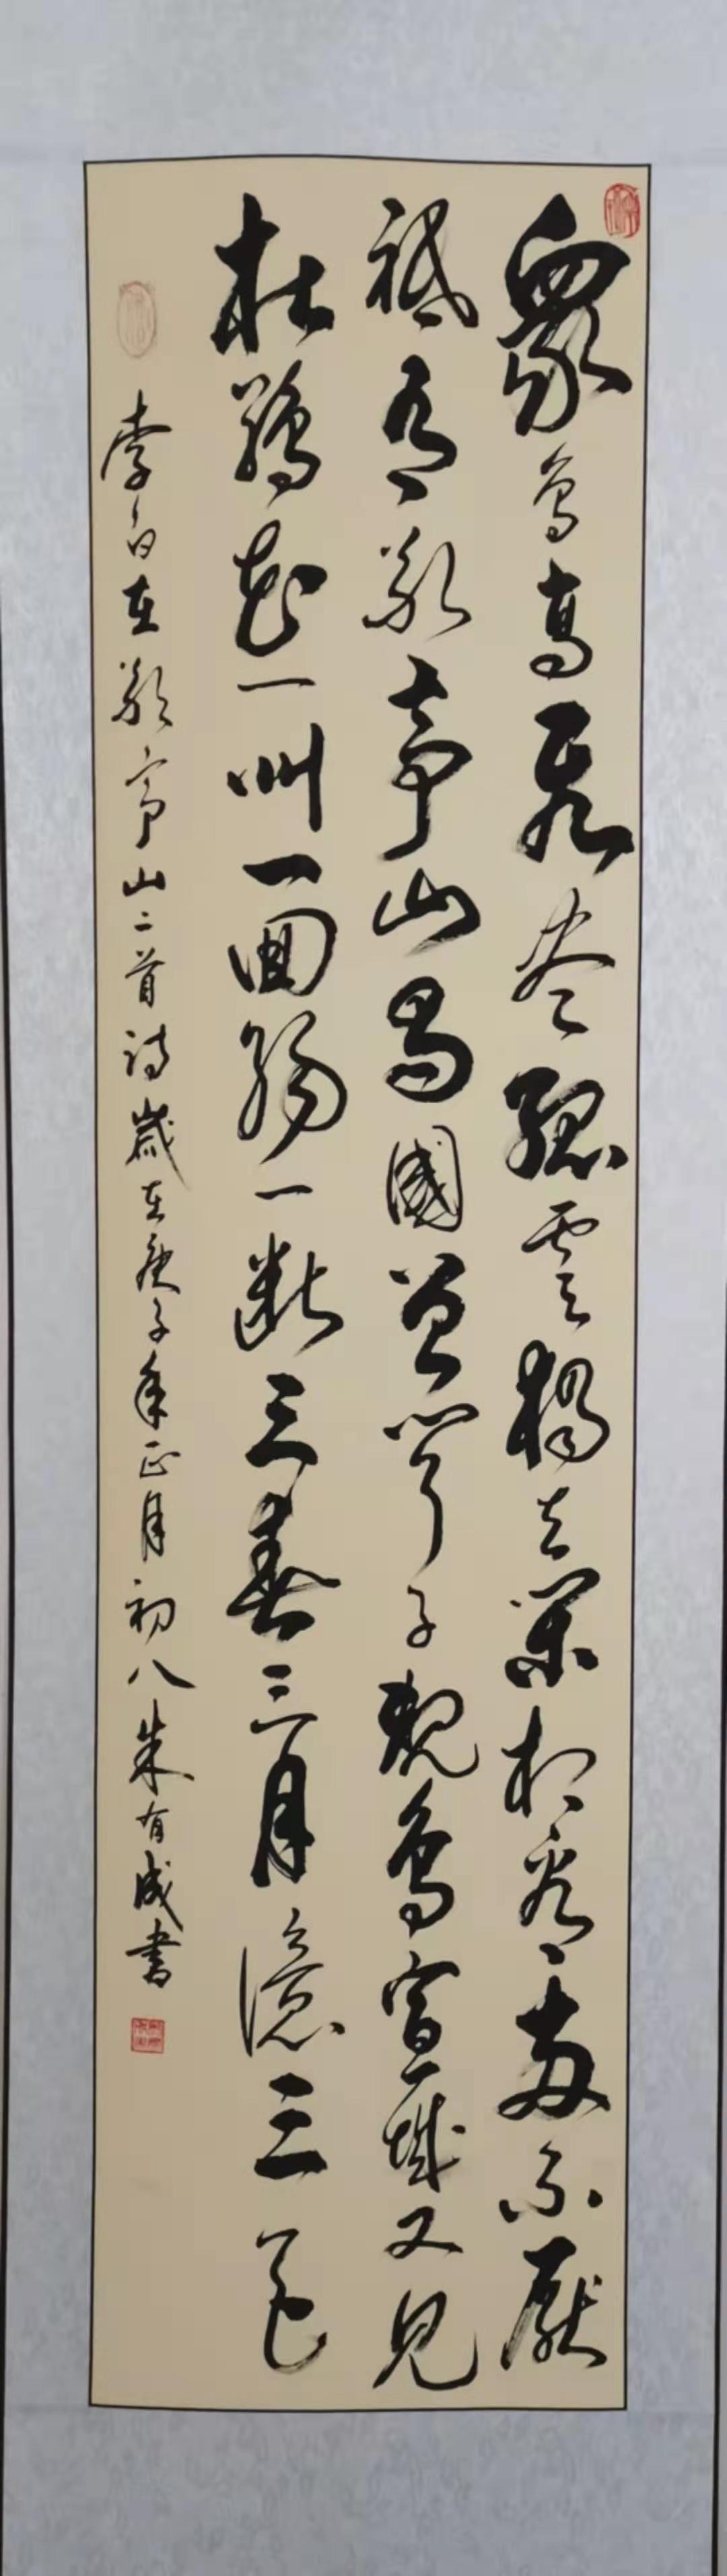 眾鳥高飛盡孤雲獨去閑相看兩不厭
祗有敬亭山蜀國曾聞子規鳥宣城又見
杜鵑花一叫一回腸一斷三春三月憶三巴
李白在敬亭山二首詩歲在庚子年正月初八朱有成書